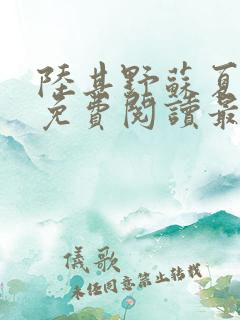 陸甚野蘇夏
免費閱讀最
儀歌
未經同意禁止轉載